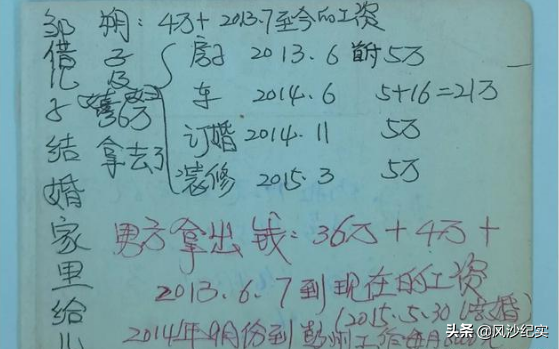 邹翔：4万+2013.7至今的工资
借儿子结婚家里给儿
子及
36万
拿去了
房子 2013.6 首付5万
车 2014.6 5+16=21万
订婚 2014.11 5万
装修 2015.3 5万
男方拿出钱：36万+4万+
2013.6.7到现在的工资
(2015.5.30结婚)
2014年9月份到彭州工作每月
头条 @风沙纪实